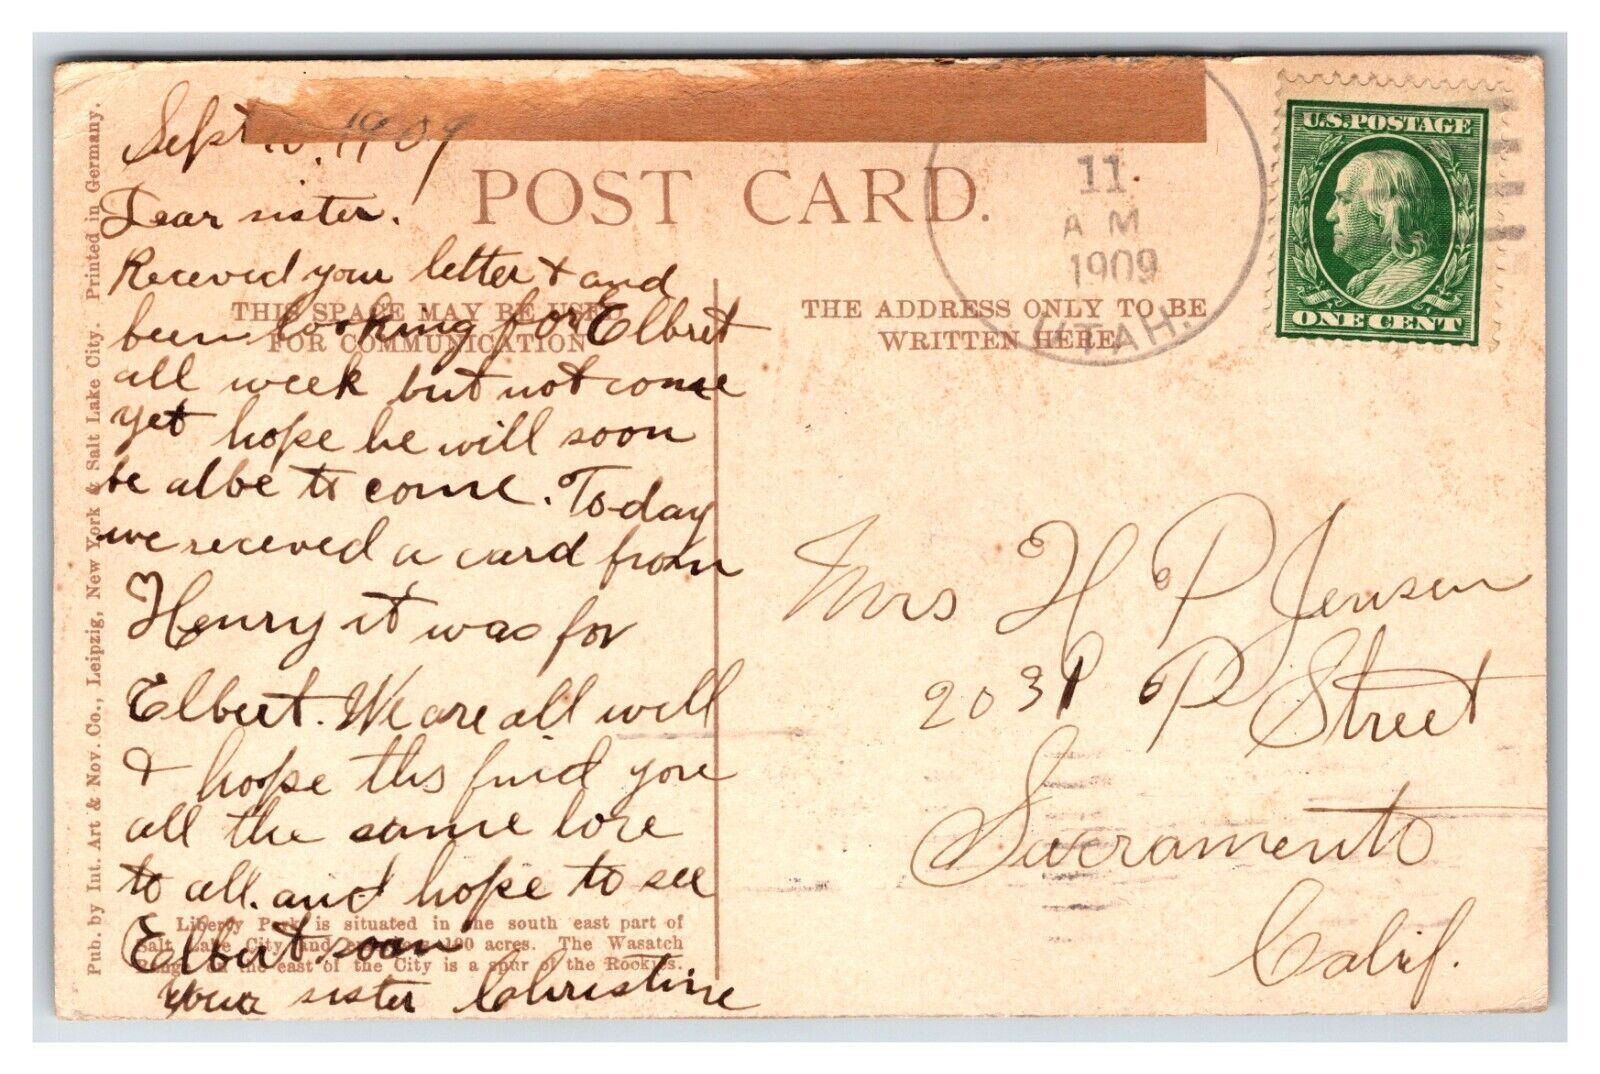 Sept 10, 1909
POST CARD.
11
AM
1909
UTAH.
U.S. POSTAGE
ONE CENT
THIS SPACE MAY BE USED
FOR COMMUNICATION
THE ADDRESS ONLY TO BE
WRITTEN HERE.
Dear sister.
Receved your letter & and
been looking for Elbret
all week but not come
yet hope he will soon
be albe to come. Today
we receved a card from
Henry it was for
Elbert. We are all well
& hope this find you
all the same love
to all. and hope to see
Elbert soon
your sister Christine
Mrs H P Jensen
2031 P Street
Sacramento
Calif.
Liberty Park is situated in the south east part of
Salt Lake City and 190 acres. The Wasatch
Range on the east of the City is a spur of the Rockies.
Pub. by Int. Art & Nov. Co., Leipzig, New York & Salt Lake City. Printed in Germany.